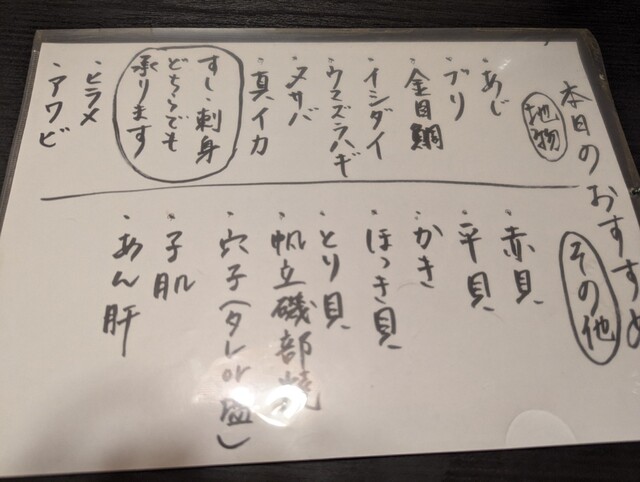 本日のおすすめ
地物
・あじ
・ブリ
・金目鯛
・イシダイ
・ウマズラハギ
・〆サバ
・真イカ
すし・刺身
どちらでも
承ります
・ヒラメ
・アワビ
その他
・赤貝
・平貝
・かき
・ほっき貝
・とり貝
・帆立磯部焼
・穴子(タレor塩)
・子肌
・あん肝